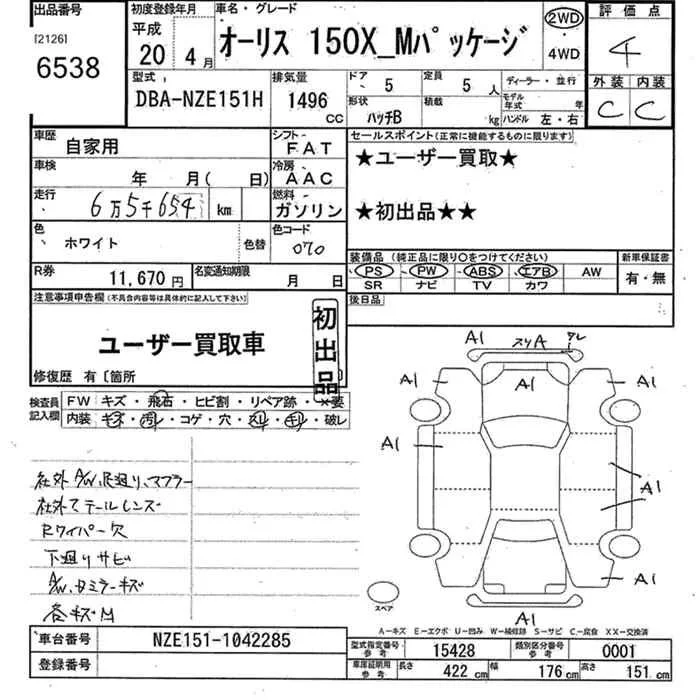 出品番号
[2126]
6538
初度登録年月
平成
20 4月
車名・グレード
オーリス 150X_Mパッケージ
2WD
・
4WD
評価点
4
外装 内装
C C
型式
DBA-NZE151H
排気量
1496 CC
ドア 5
定員 5 人
形状 ハッチB
積載 kg
ディーラー・並行
モデル年式 年
ハンドル 左・右
車歴 自家用
シフト FAT
車検 年 月( 日)
冷房 AAC
走行 6万5千654 km
燃料 ガソリン
色 ホワイト 色替
色コード 070
R券 11,670円
名変通知期限 月 日
セールスポイント(正常に機能するものに限ります)
★ユーザー買取★
★初出品★★
装備品(純正品に限り○をつけてください)
PS PW ABS エアB AW
SR ナビ TV カワ
新車保証書
有・無
後日品
注意事項申告欄(不具合内容等は具体的に記入して下さい)
ユーザー買取車
初出品
修復歴 有〔箇所
検査員記入欄
FW キズ・飛石・ヒビ割・リペア跡・×要
内装 キズ・汚レ・コゲ・穴・スレ・キレ・破レ
社外A/W、足廻り、マフラー
社外テールレンズ
Rワイパー欠
下廻りサビ
A/W、ミラーキズ
各キズM
A1 スリA ワレ
A1 A1 A1
A1 A1
A1 A1
A1
スペア
A−キズ E−エクボ U−凹み W−補修跡 S−サビ C−腐食 XX−交換済
車台番号 NZE151-1042285
登録番号
型式指定番号 参考 15428
類別区分番号 参考 0001
車庫証明用 参考 長さ 422 cm 幅 176 cm 高さ 151 cm